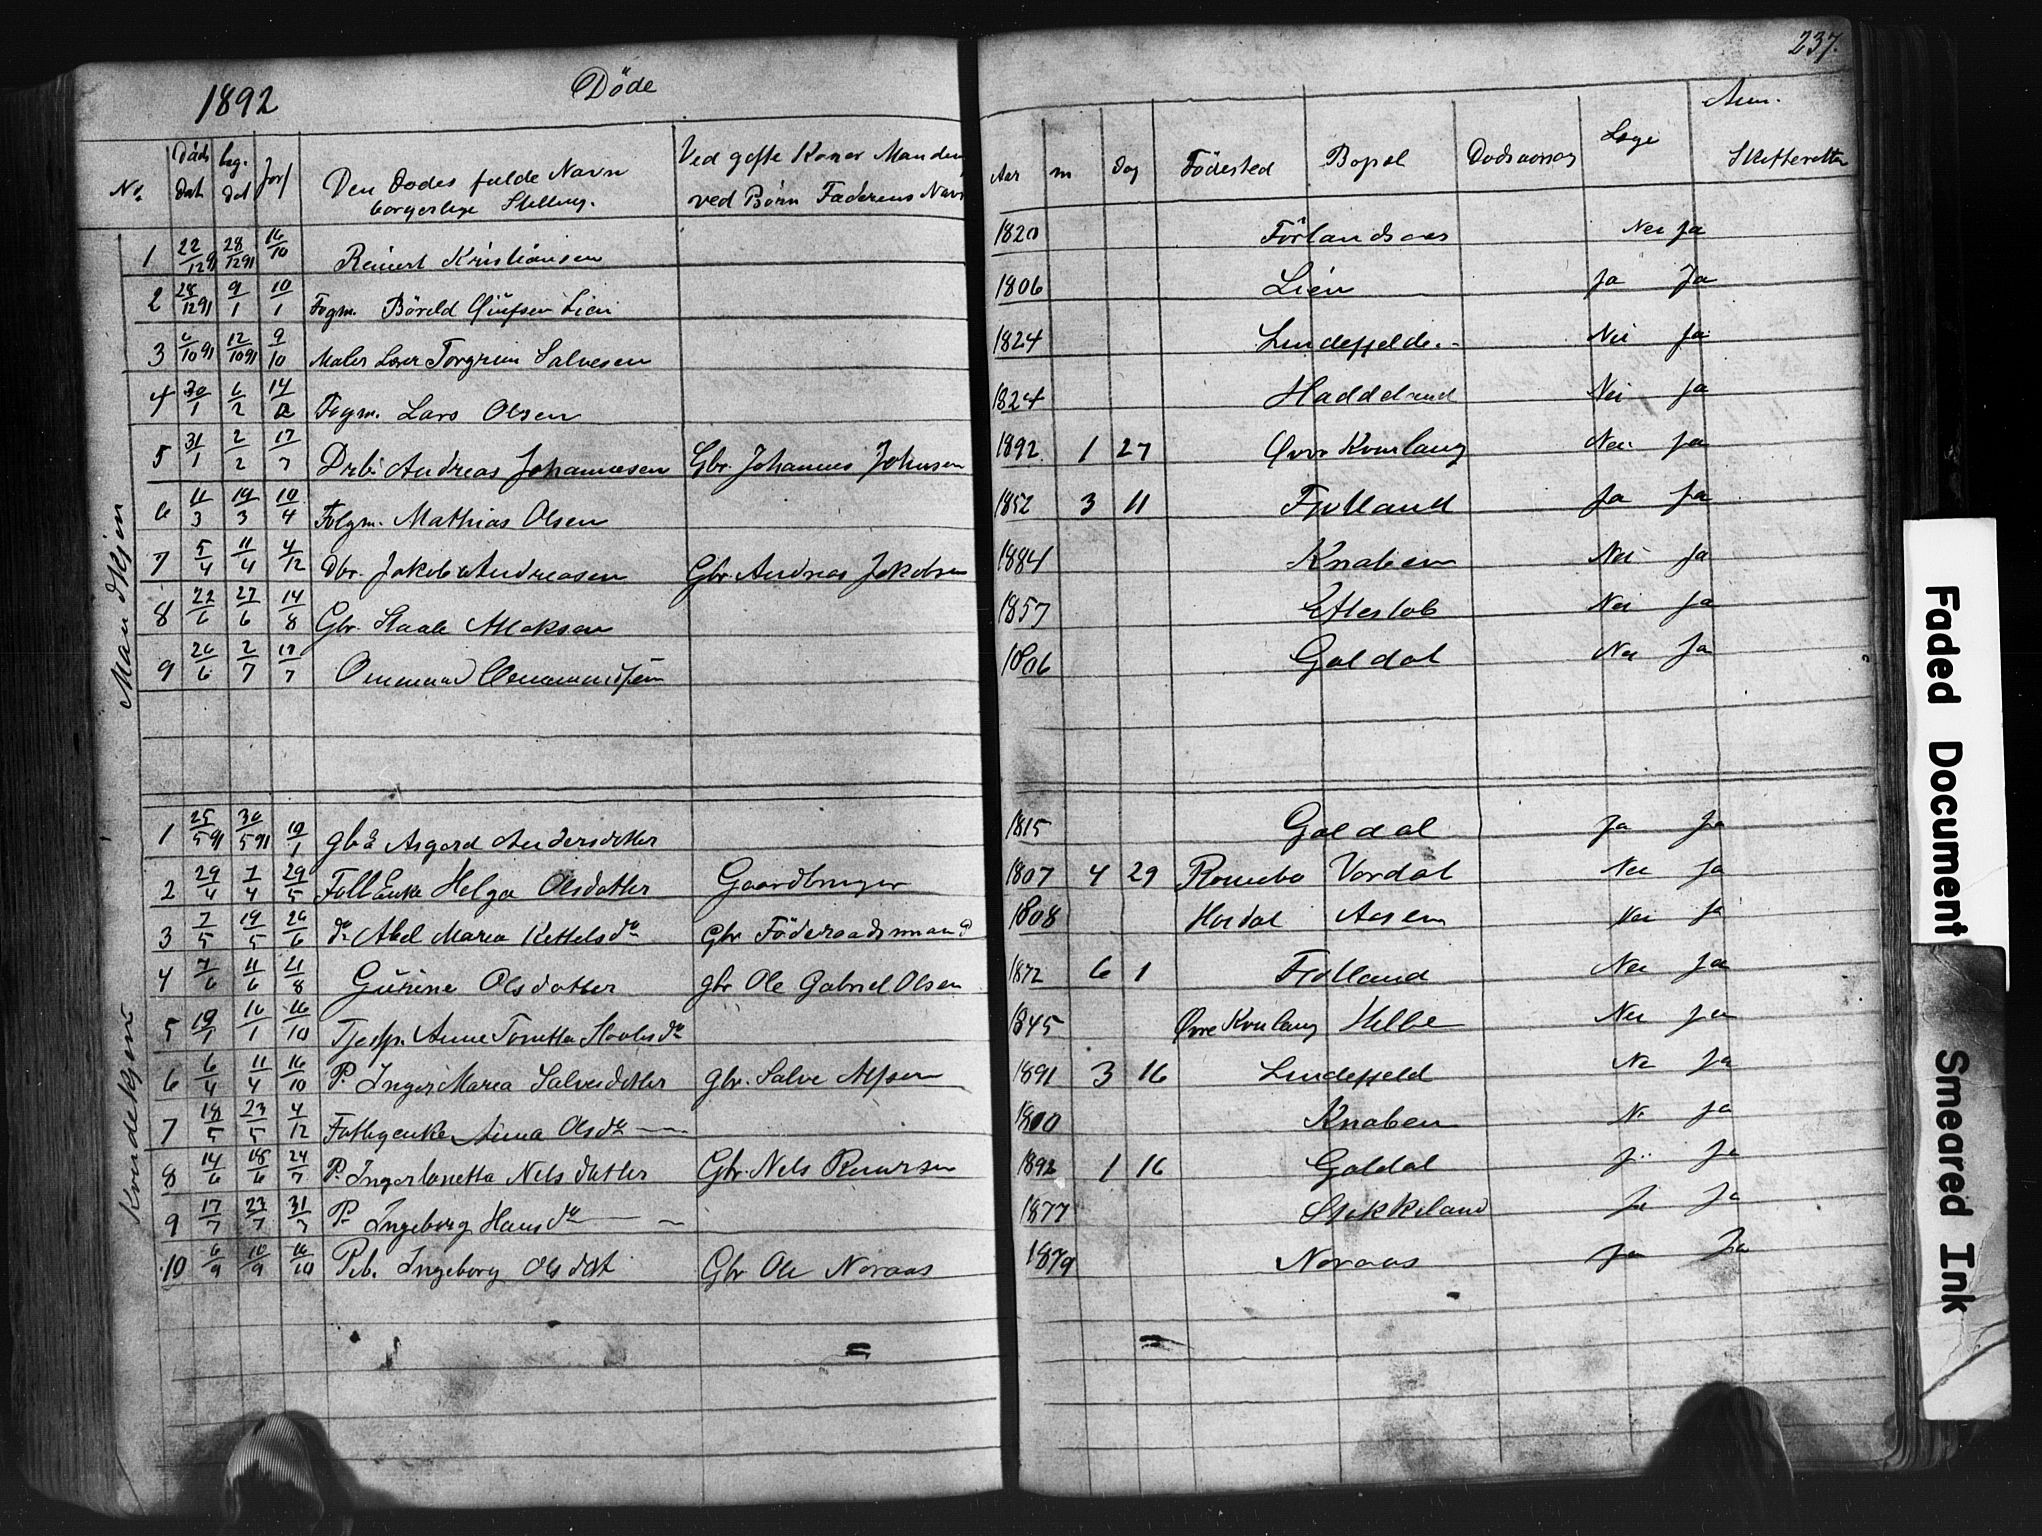 237.
1892 Döde
No. Döds dat beg. dat Jorf Den Dødes fulde Navn borgerlige Stilling. Ved gifte Koner Mandens ved Børn Faderens Navn Aar m Dag Födested Bopel Dødsaarsag Læge Anm. Skifteretten
Mandkjøn
1 22/12 91 28/12 91 16/10 Reinert Kristiansen 1820 Förlandsaas Nei Ja
2 28/12 91 9/1 10/1 Fogm. Böreld Lien 1806 Lien Ja Ja
3 6/10 91 12/10 91 9/10 Maler Torgrim Salvesen 1824 Lindefjeld Nei Ja
4 30/1 6/2 14/12 Fogm. Lars Olsen 1824 Haddeland Nei Ja
5 31/1 2/2 17/7 Drb: Andreas Johannesen Gbr. Johannes Johnsen 1892 1 27 Øvre Kvinlaug Nei Ja
6 11/3 19/3 10/4 Folgm. Mathias Olsen 1852 3 11 Fjotland Ja Ja
7 5/4 11/4 4/12 Dbr. Jakob Andreasen Gbr. Andreas Jakobsen 1884 Knaben Nei Ja
8 22/6 27/6 14/8 Gbr. Staale Aslaksen 1857 Eftestøl Nei Ja
9 26/6 2/7 17/7 Ommund Ommundsen 1806 Galdal Nei Ja
Kvindekjøn
1 25/5 91 30/5 91 19/1 gbE Asgerd Andersdatter 1815 Galdal Ja Ja
2 29/4 7/4 29/5 Foll Enke Helga Olsdatter Gaardbruger 1807 4 29 Vordal Nei Ja
3 7/5 19/5 26/6 do Abel Maria Kettelsdr Gbr Föderaadsmand 1808 Aasen Nei Ja
4 7/6 11/6 21/8 Gurine Olsdatter gbr Ole Gabriel Olsen 1872 6 1 Fjotland Nei Ja
5 19/1 16/1 16/10 Anne Tonetta Staalesdr 1845 Øvre Kvinlaug Helle Nei Ja
6 6/4 11/4 16/10 P. Inger Maria Salvesdatter gbr. Salve Alfsen 1891 3 16 Lindefjeld Nei Ja
7 18/5 23/5 4/12 Fattigenke Anna Olsdr 1800 Knaben Ni Ja
8 14/6 18/6 24/7 P. Ingertonetta Nelsdatter Gbr. Nels Reinersen 1892 1 16 Galdal Ja
9 17/7 23/7 31/7 P. Ingeborg Hansdr 1877 Stakkeland Ja Ja
10 6/9 10/9 16/10 Pib. Ingeborg Olsdat Gbr Ole Noraas 1879 Noraas Ja Ja
Faded Document
Smeared Ink